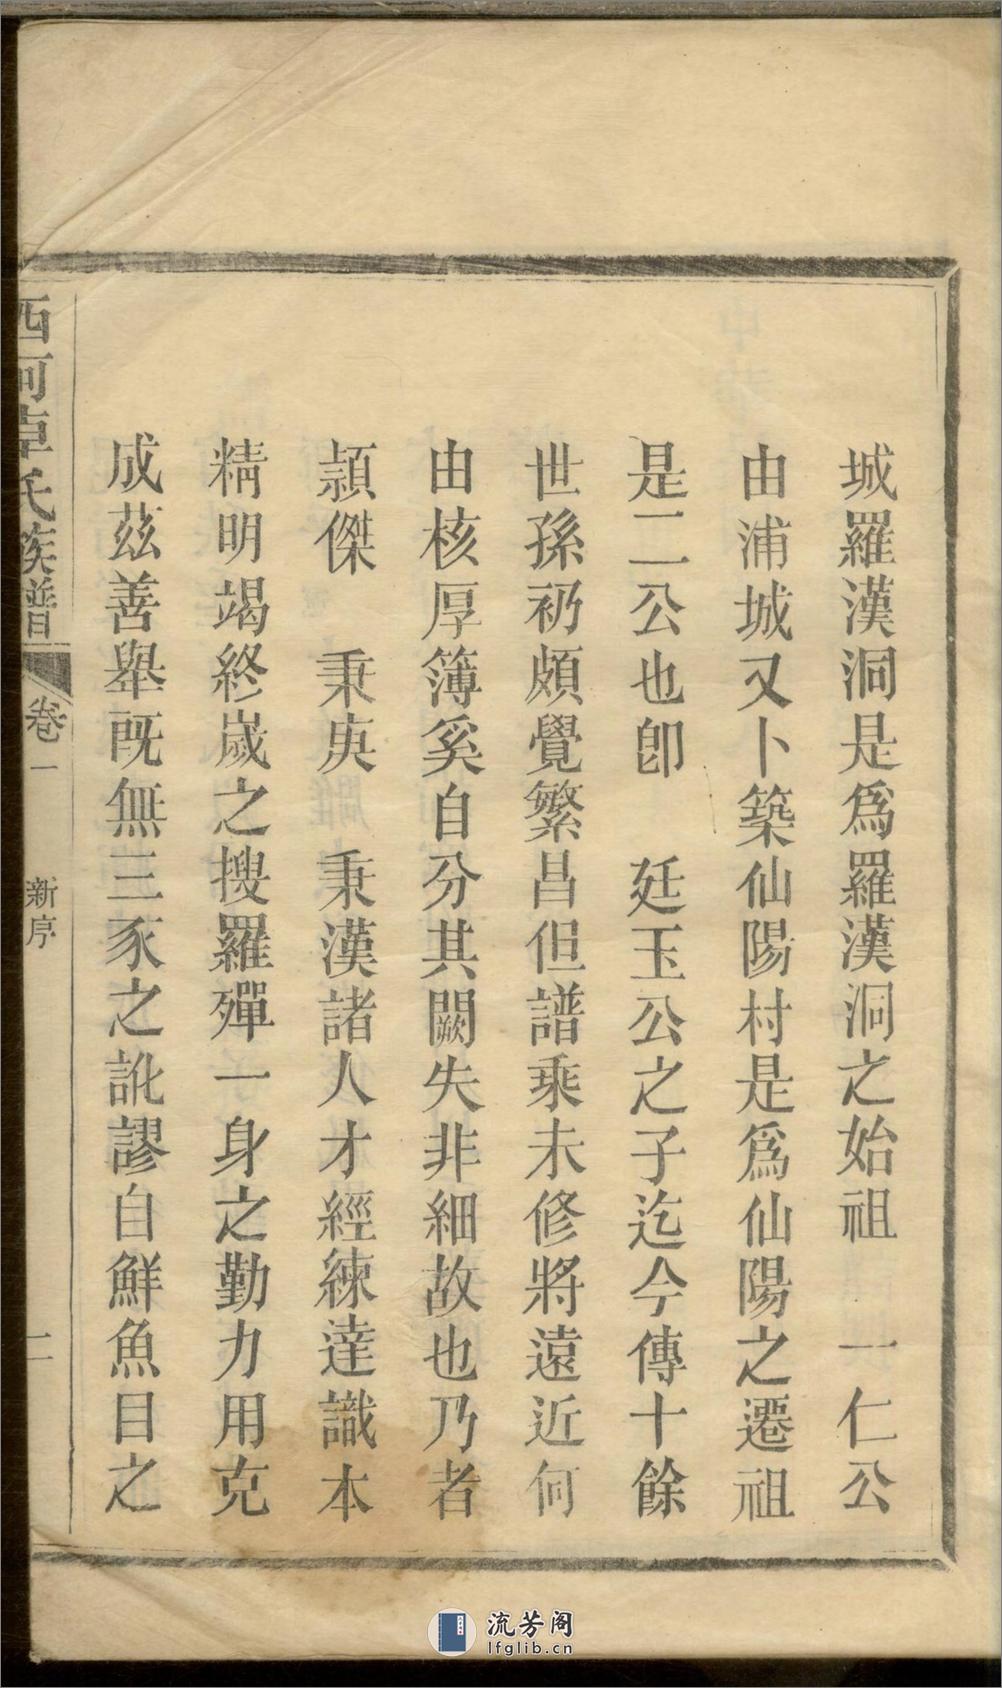 城羅漢洞是爲羅漢洞之始祖　一仁公
由浦城又卜築仙陽村是爲仙陽之遷祖
是二公也卽　廷玉公之子迄今傳十餘
世孫礽頗覺繁昌但譜乘未修將遠近何
由核厚簿奚自分其闕失非細故也乃者
頴傑　秉庚　秉漢諸人才經練達識本
精明竭終嵗之搜羅殫一身之勤力用克
成茲善舉旣無三豕之訛謬自鮮魚目之
西河卓氏族譜
卷一
新序
二
流芳阁
lfglib.cn